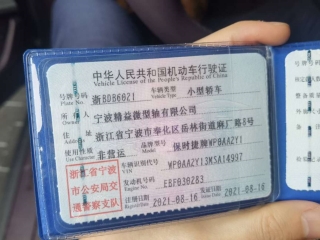 中华人民共和国机动车行驶证
Vehicle License of the People's Republic of China
号牌号码 浙BDB6021 车辆类型 小型轿车
Plate No. Vehicle Type
所有人 宁波精益微型轴有限公司
Owner
住址 浙江省宁波市奉化区岳林街道麻厂路8号
Address
使用性质 非营运 品牌型号 保时捷牌WP0AA2YI
Use Character Model
浙江省宁波
市公安局交
通警察支队
车辆识别代号 WP0AA2Y13MSA14937
VIN
发动机号码 EBF030283
Engine No.
注册日期 2021-08-16 发证日期 2021-08-16